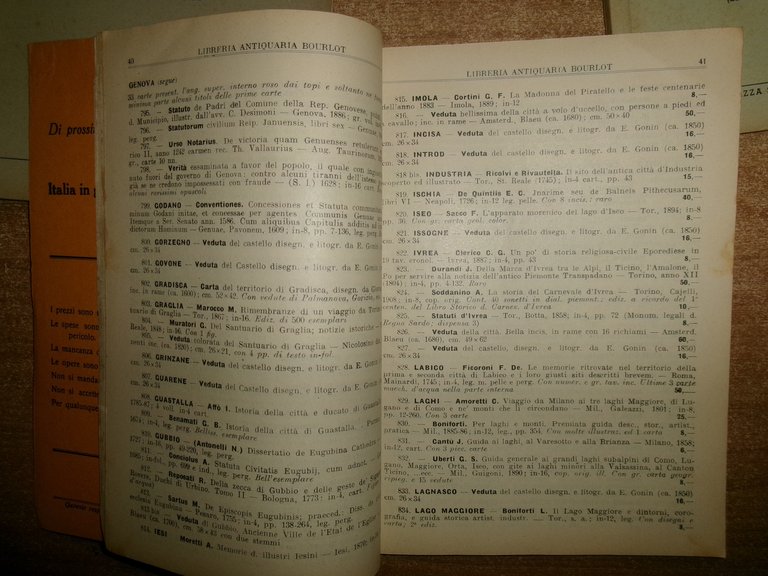 Di prossi
Italia in
I prezzi sono
Le opere sono
pericolo.
La mancanza
Le opere sono
Non si manda
Non si accett
Per qualunque
40
LIBRERIA ANTIQUARIA BOURLOT
GENOVA (segue)
33 carte present. l'ang. super. interno roso dai topi e soltanto ne
minima parte alcuni titoli delle prime carte.
795. — Statuto de Padri del Comune della Rep. Genovese,
d. Municipio, illustr. dall'avv. C. Desimoni — Genova, 1886; gr. vol.
796. — Statutorum civilium Reip. Januensis, libri sex —
leg. perg.
797. — Urso Notarius. De victoria quam Genuenses retulerunt
rico II, anno 1242 carmen rec. Th. Vallarius — Aug. Taurinorum,
gr., carte 10 nn.
798. — Verità essaminata a favor del popolo, il quale con
nato fuori del governo di Genova; contro alcuni tiranni dell'istesso
già se ne credano impossessati con fraude — (S. l.) 1628; in-16 cart.
alcuni rarissimi opuscoli
799. GODANO — Conventiones. Concessiones et Statuta
minum Godani initae, et concessae per agentes Communis Genuae
Itemque a Ser. Senato ann. 1586. Cum aliquibus Capitulis additis
dictorum Hominum — Genuae, Pavonem, 1609; in-8, pp. 7-136, leg. perg.
800. GORZEGNO — Veduta del castello disegn. e litogr. da E. Gonin
cm. 26 x 34
801. GOVONE — Veduta del Castello disegn. e litogr. da E. Gonin
cm. 26 x 34
802. GRADISCA — Carta del territorio di Gradisca, disegn. da
inc. in rame (ca. 1600), cm. 52 x 42. Con vedute di Palmanova, Gorizia,
803. GRAGLIA — Marocco M. Rimembranze di un viaggio da
tuario di Graglia — Tor., 1867; in-16. Ediz. di 500 esemplari
804. — Muratori G. Del Santuario di Graglia; notizie istoriche —
Reale, 1848; in 16. Con 1 fig.
805. — Veduta colorata del Santuario di Graglia — Nicolosino
nenti inc. (ca. 1820); cm. 26 x 21, con 4 pp. di testo in-fol.
806. GRINZANE — Veduta del castello disegn. e litogr. da E.
cm. 26 x 34
807. GUARENE — Veduta del castello disegn. e litogr. da E.
cm. 26 x 34
808. GUASTALLA — Affò I. Istoria della città e ducato di Guastalla
1785-87; 4 voll. in-4 cart.
809. — Benamati G. B. Istoria della città di Guastalla
1674; in-4, leg. perg. Belliss. esemplare
810. GUBBIO — (Antonelli N.) Dissertatio de Eugubina Cathedra
1727; in-16, pp. 40-220, leg. perg.
811. — Conciolus A. Statuta Civitatis Eugubij, cum adnot.
1685; infol., pp. 699 e ind., leg. perg. Bell'esemplare
812. — Reposati R. Della zecca di Gubbio e delle geste de'
Rovere, Duchi di Urbino. Tomo II — Bologna, 1773; in-4, cart. f
d'acqua)
813. — Sartus M. De Episcopis Eugubinis; praeced. Diss. de
ecclesia Eugubina — Pesaro, 1755; in-4, pp. 138-264, leg. perg.
813 bis — Veduta di Gubbio, Ancienne Ville de l'Etat de l'Eglise
Blaeu (ca. 1700), cm. 58 x 43 con due stemmi
814. IESI — Moretti A. Memorie d. illustri Iesini — Iesi, 1870;
LIBRERIA ANTIQUARIA BOURLOT
41
815. IMOLA — Cortini G. F. La Madonna del Piratello e le feste centenarie
dell'anno 1883 — Imola, 1889; in-12
8,—
816. — Veduta bellissima della città a volo d'uccello, con persone a piedi ed
a cavallo; inc. in rame — Amsterd., Blaeu (ca. 1680); cm. 50 x 40
50,—
817. INCISA — Veduta del castello disegn. e litogr. da E. Gonin (ca. 1850)
cm. 26 x 34
16,—
818. INTROD — Veduta del castello disegn. e litogr. da E. Gonin (ca. 1850)
cm. 26 x 34
16,—
818 bis. INDUSTRIA — Ricolvi e Rivautella. Il sito dell'antica città d'Industria
scoperto ed illustrato — Tor., St. Reale (1745); in-4 cart., pp. 43
15,—
819. ISCHIA — De Quintiis E. C. Jnarime seu de Balneis Pithecusarum,
libri VI — Neapoli, 1726; in-12 leg. pelle. Con 8 incis. i raro
40,—
820. ISEO — Sacco F. L'apparato morenico del lago d'Iseo — Tor., 1894; in-8,
pp. 56. Con gr. carta geol. color.
8,—
821. ISSOGNE — Veduta del castello disegn. e litogr. da E. Gonin (ca. 1850)
cm. 26 x 34
16,—
822. IVREA — Clerico C. G. Un po' di storia religiosa-civile Eporediese in
19 tav. cronol. — Ivrea, 1887; in-4, pp. 43
8,—
823. — Durandi J. Della Marca d'Ivrea tra le Alpi, il Ticino, l'Amalone, il
Po per servire alla notizia dell'antico Piemonte Transpadano — Torino, anno XII
(1804); in-4, pp. 4-132. Raro
50,—
824. — Soddanino A. La storia del Carnevale d'Ivrea — Torino, Cajelli,
1908; in-8, cop. orig. Cart. 40 sonetti in dial. piement.; ediz. a ricordo del 1°
centen. del Libro Storico d. Carnev. d'Ivrea
825. — Statuti d'Ivrea — Tor., Botta, 1858; in-4, pp. 72 (Monum. legali d.
Regno Sardo; dispensa 3)
8,—
826. — Veduta della città. Bella incis. in rame con 16 richiami — Amsterd.,
Blaeu (ca. 1680), cm. 49 x 62
50,—
827. — Veduta del castello disegn. e litogr. da E. Gonin (ca. 1850)
cm. 26 x 34
16,—
828. LABICO — Ficoroni F. De. Le memorie ritrovate nel territorio della
prima e seconda città di Labico e i loro giusti siti descritti brevem. — Roma,
Mainardi, 1745; in-4, leg. m. pelle e perg. Con numer. e gr. tav. inc. Ultime 3 carte
march. d'acqua nella parte interna
50,—
829. LAGHI — Amoretti C. Viaggio da Milano ai tre laghi Maggiore, di Lu-
gano e di Como e ne' monti che li circondano — Mil., Galeazzi, 1801; in-8,
pp. 12-260. Con 3 carte
25,—
830. — Boniforti. Per laghi e monti. Premiata guida desc., stor., artist.,
pratica — Mil., 1885-86; in-12, leg., pp. 354. Con molte illustraz. ed 1 carta
8,—
831. — Cantù J. Guida ai laghi, al Varesotto e alla Brianza — Milano, 1858;
in-12, cart. Con 3 picc. carte
6,—
832. — Uberti G. S. Guida generale ai grandi laghi subalpini di Como, Lu-
gano, Maggiore, Orta, Iseo, con gite ai laghi minori alla Valsassina, al Canton
Ticino, ...ecc. — Mil., Guigoni, 1890; in-16, cop. orig. ill. Con gr. carta geogr.
ripieg. e 15 vedute
8,—
833. LAGNASCO — Veduta del castello disegn. e litogr. da E. Gonin (ca. 1850)
cm. 26 x 34
16,—
834. LAGO MAGGIORE — Boniforti L. Il Lago Maggiore e dintorni, coro-
grafia, e guida storica artist. industr. ... — Tor., s. a.; in-12, leg. Con disegni e
carta; 2ª ediz.
8,—